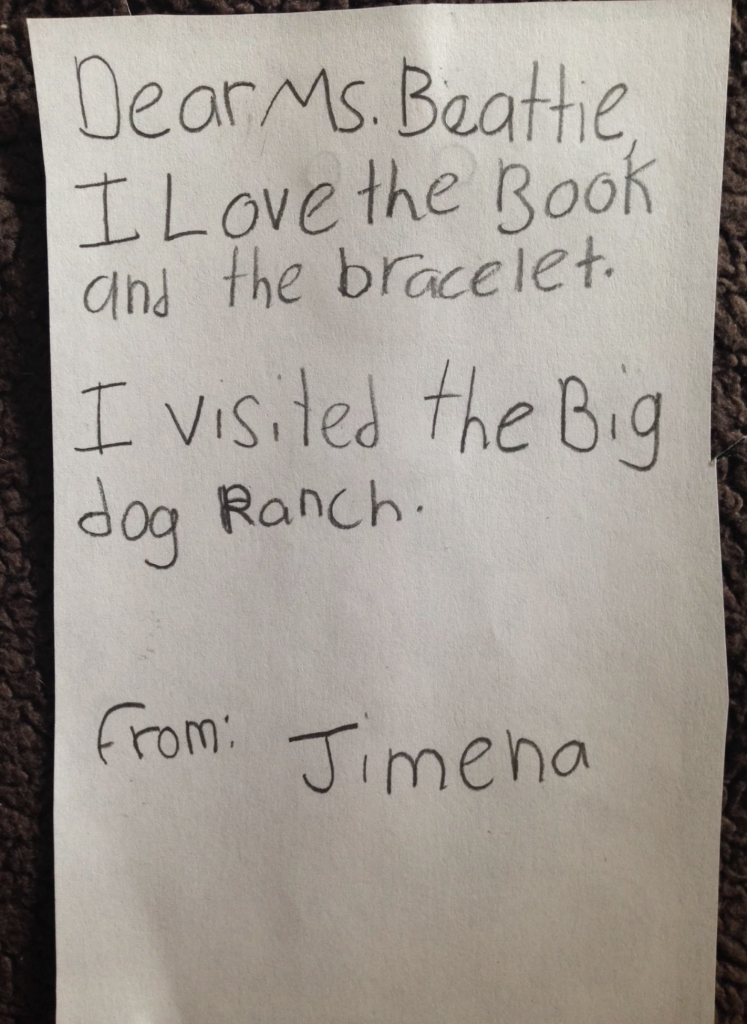 Dear Ms. Beattie,
I Love the Book
and the bracelet.
I visited the Big
dog Ranch.
From: Jimena